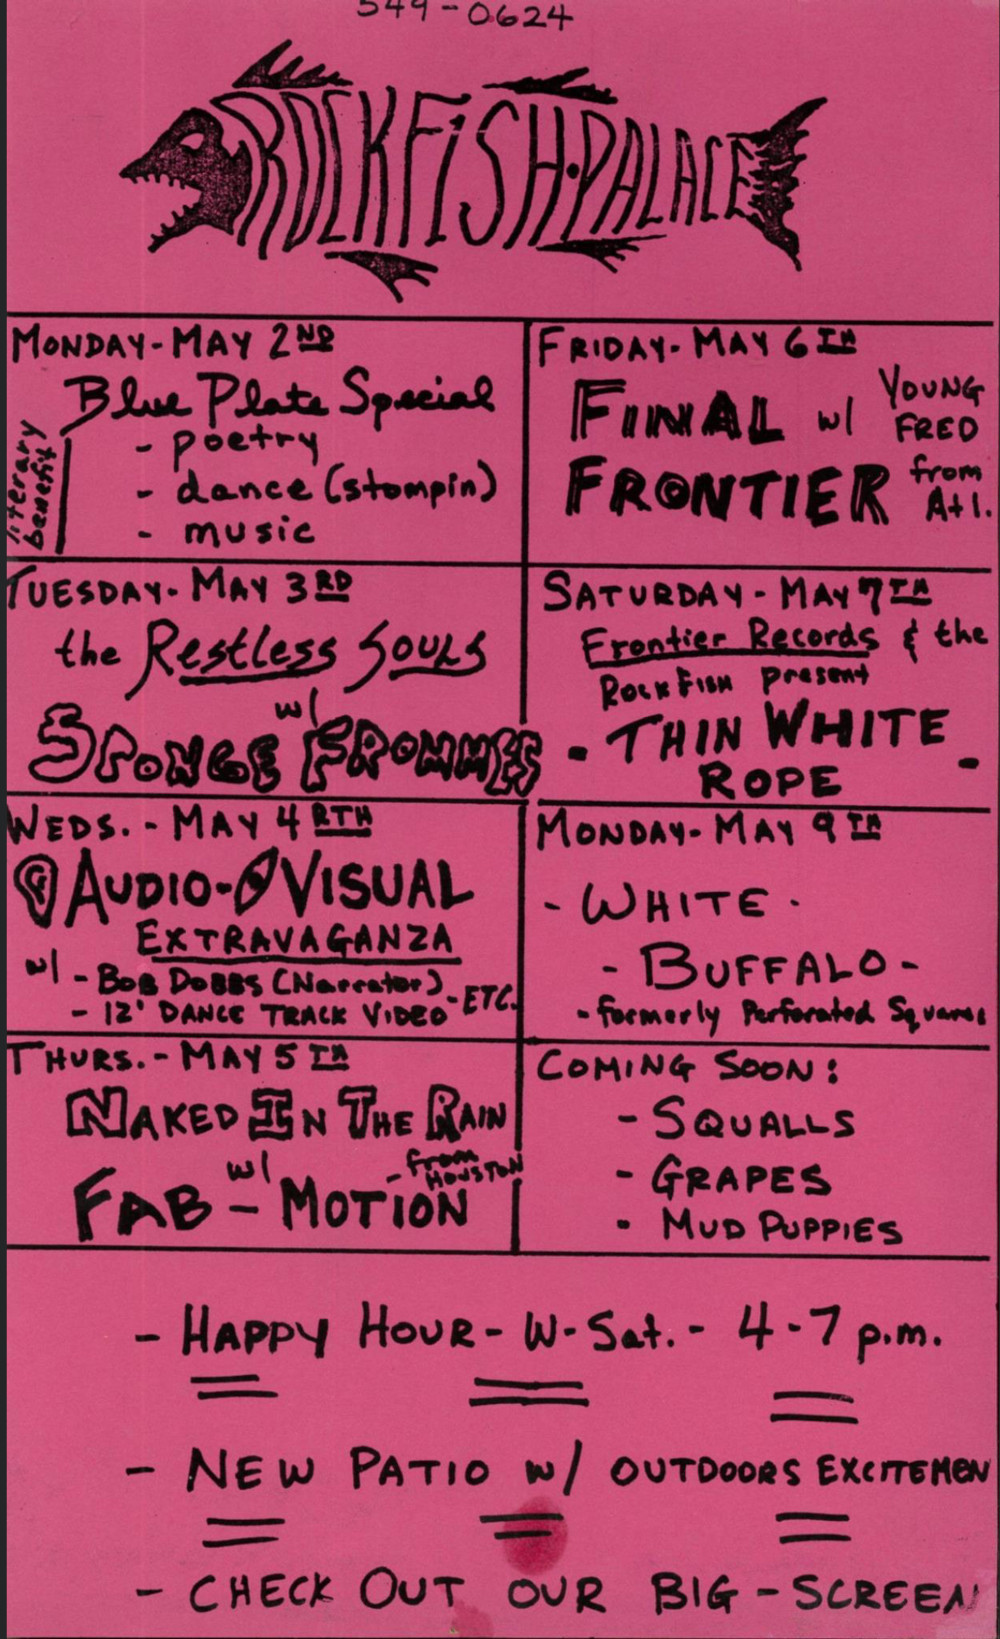 549-0624
ROCKFiSH·PALACE
MONDAY-MAY 2ND
Blue Plate Special
literary
benefit
- poetry
- dance (stompin)
- music
TUESDAY- MAY 3RD
the Restless Souls
w/
SPONGE FROMMIES
WEDS. - MAY 4RTH
AUDIO-VISUAL
EXTRAVAGANZA
w/ - BOB DOBBS (Narrator)
- 12' DANCE TRACK VIDEO -ETC.
THURS. - MAY 5TH
NAKED IN THE RAIN
w/ - from
HOUSTON
FAB - MOTION
FRIDAY- MAY 6TH
FINAL w/ YOUNG
FRED
FRONTIER from
Atl.
SATURDAY - MAY 7TH
Frontier Records & the
ROCKFISH present
- THIN WHITE
ROPE -
MONDAY- MAY 9TH
- WHITE -
- BUFFALO -
- formerly Perforated Squares
COMING SOON:
- SQUALLS
- GRAPES
- MUD PUPPIES
- HAPPY HOUR - W-Sat. - 4-7 p.m.
- NEW PATIO w/ OUTDOORS EXCITEMEN
- CHECK OUT OUR BIG-SCREEN